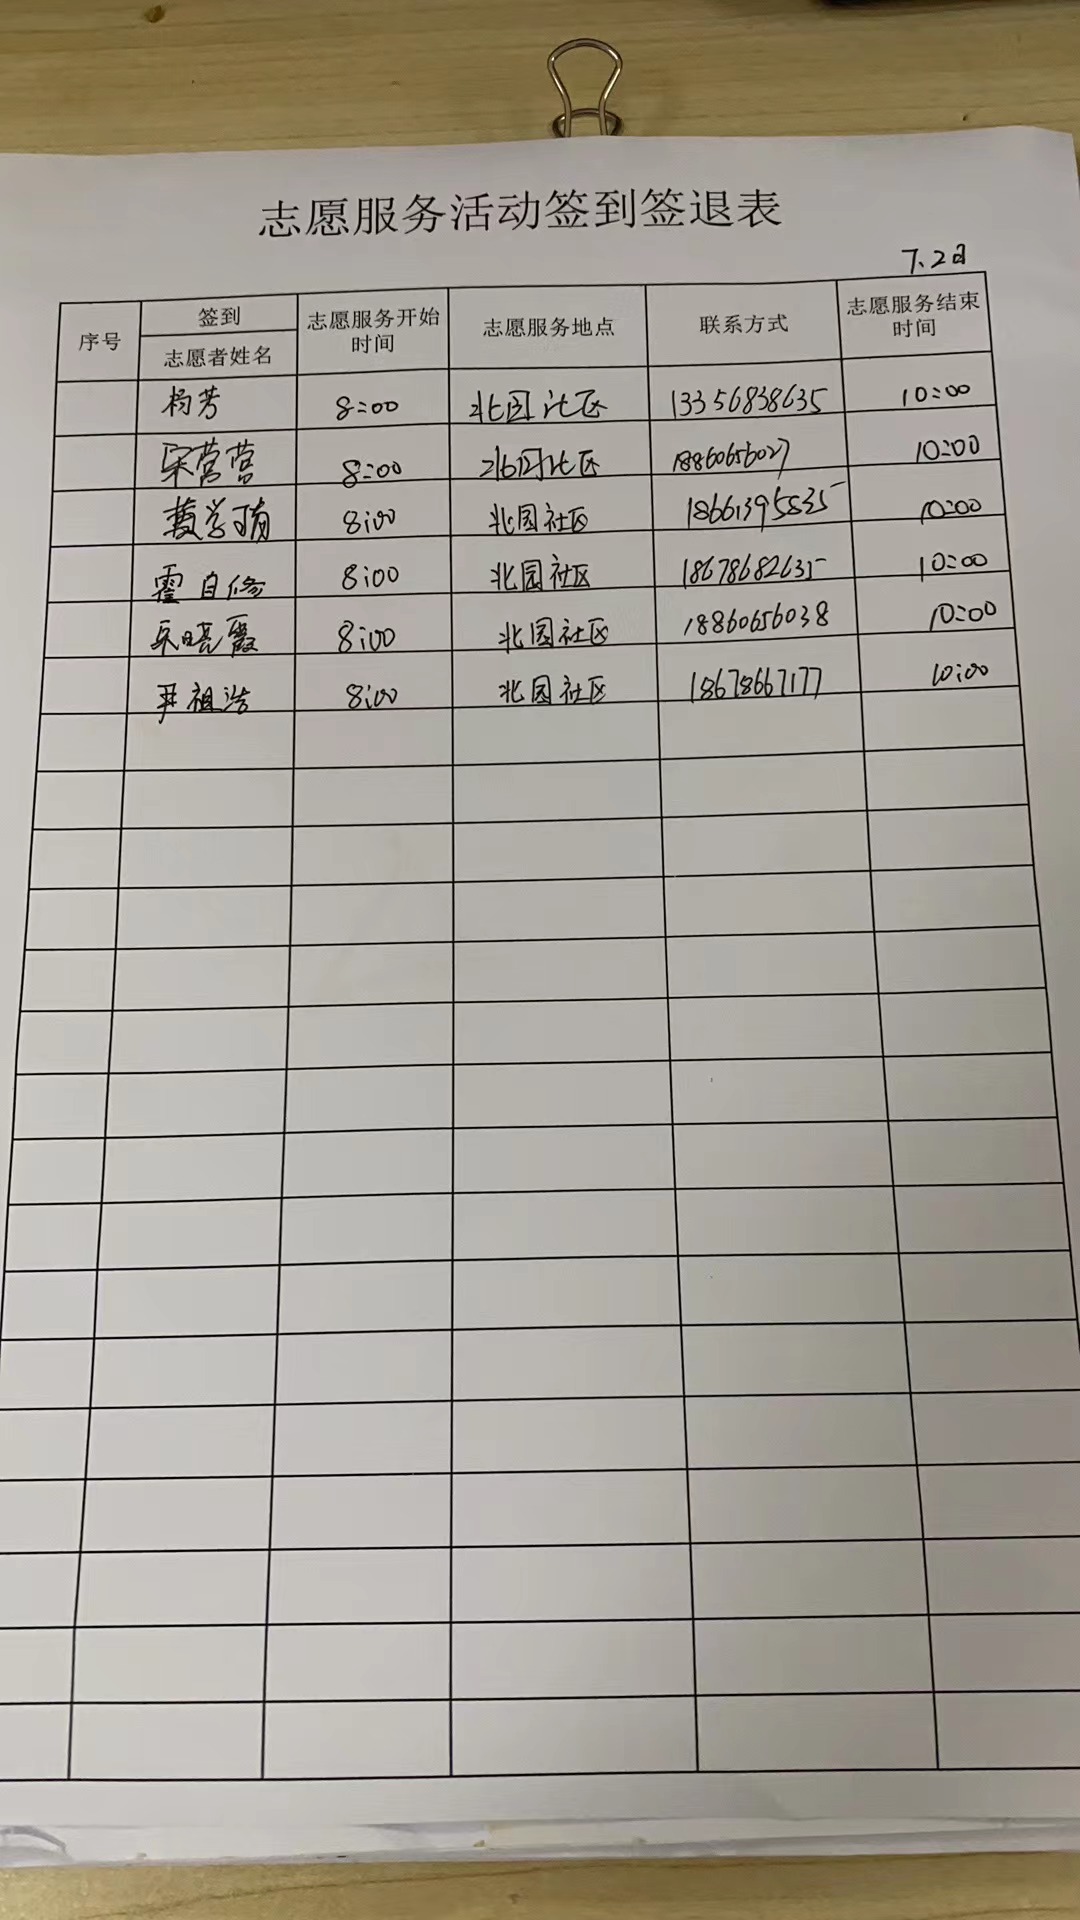 志愿服务活动签到签退表
7.2日
序号 签到 志愿者姓名 志愿服务开始时间 志愿服务地点 联系方式 志愿服务结束时间
杨芳 8:00 北园社区 13356838635 10:00
宋营营 8:00 北园社区 18860656027 10:00
8:00 北园社区 18661395535 10:00
霍自修 8:00 北园社区 18678682635 10:00
晓霞 8:00 北园社区 18860656038 10:00
尹祖浩 8:00 北园社区 18678667177 10:00